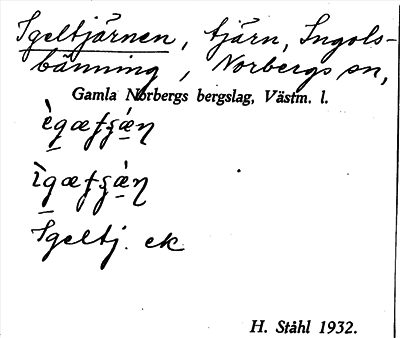 Igeltjärnen, tjärn, Ingols-
bänning, Norbergs sn,
Gamla Norbergs bergslag, Västm. l.
Igeltj. ek
H. Ståhl 1932.